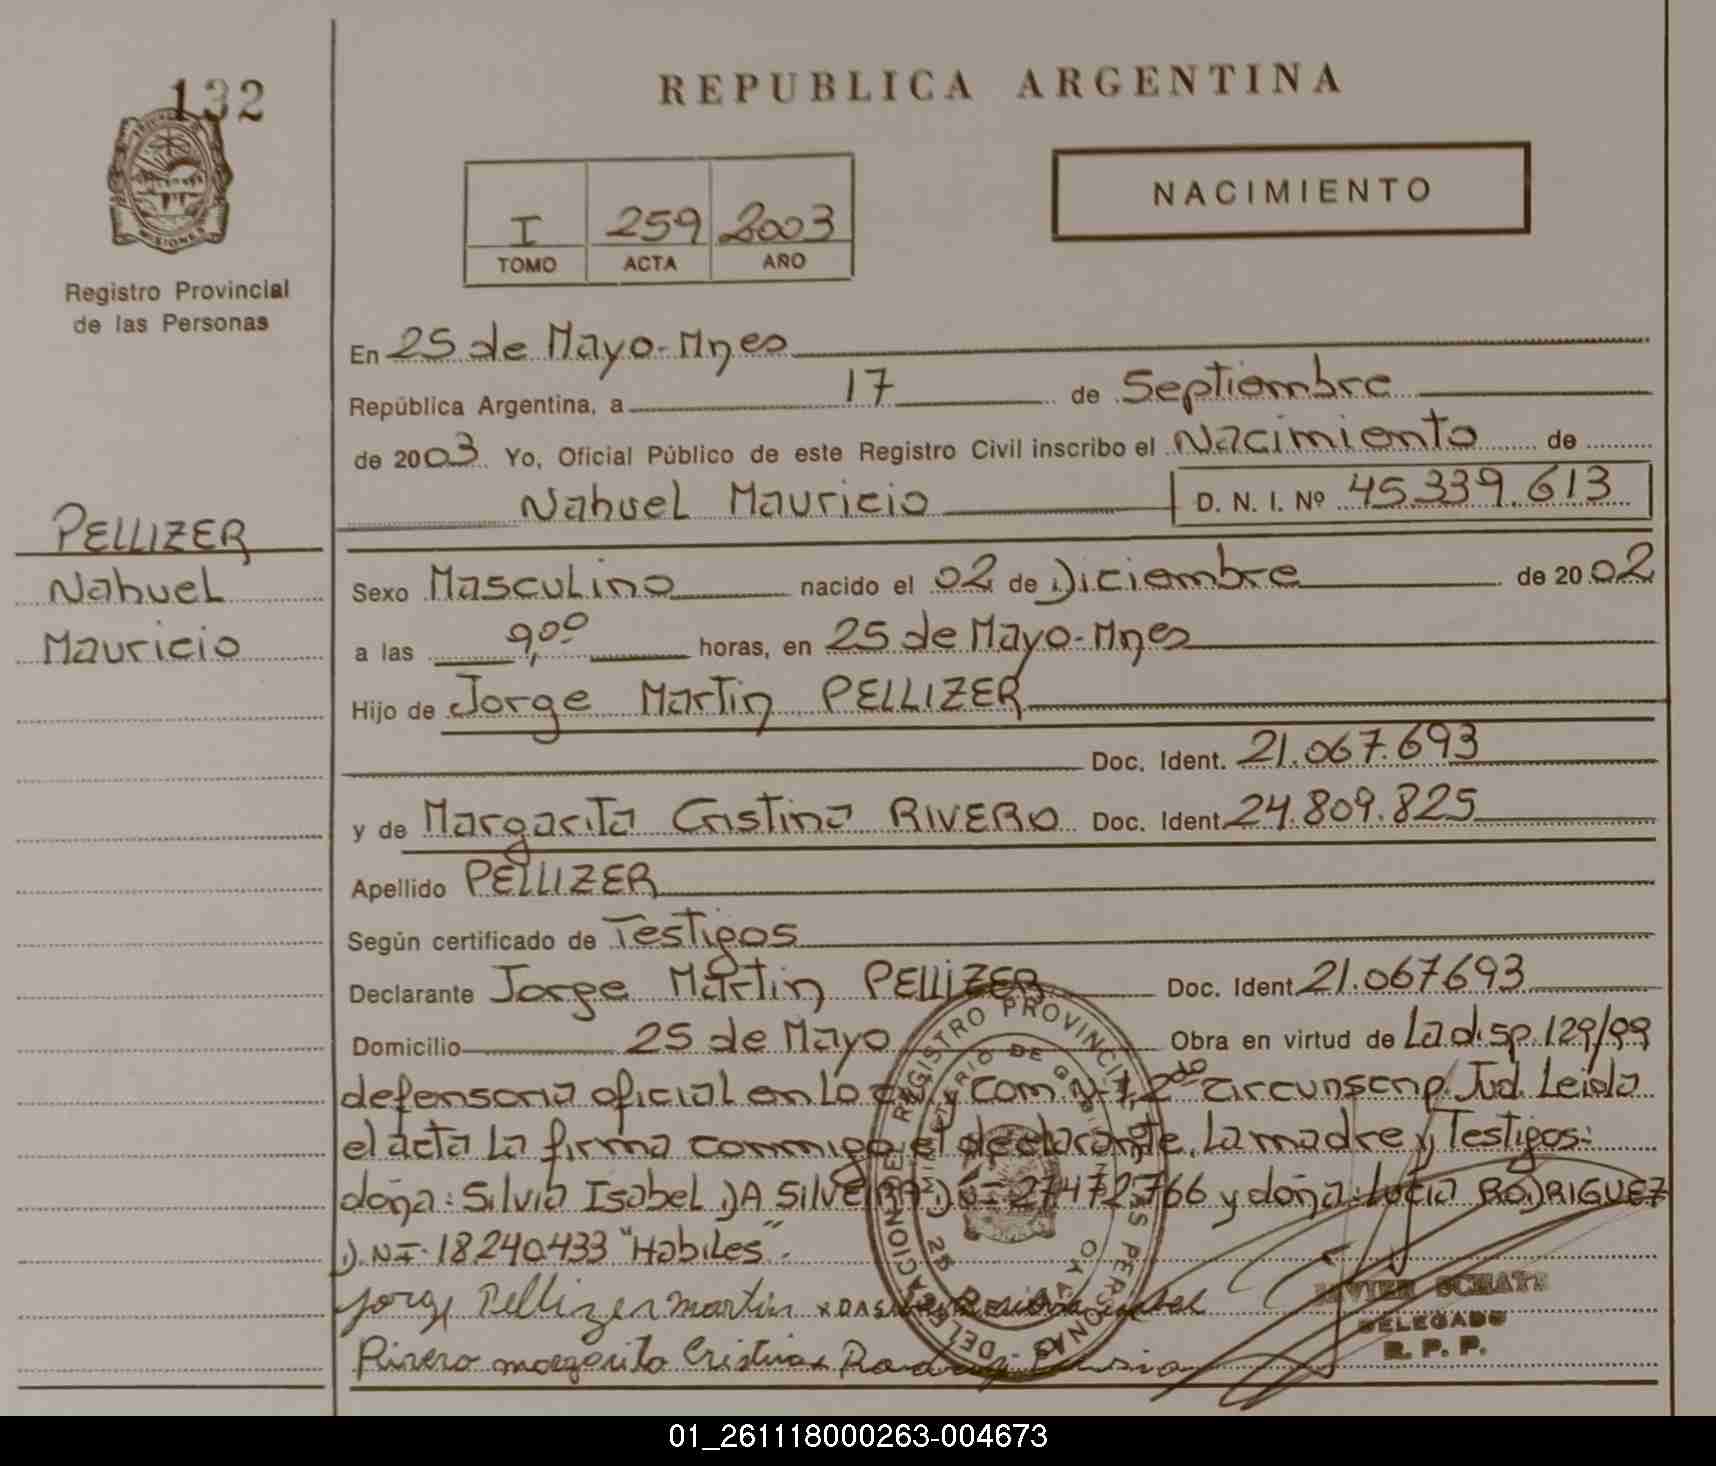 132
MISIONES
Registro Provincial
de las Personas
PELLIZER
Nahuel
Mauricio
REPUBLICA ARGENTINA
I 259 2003
TOMO ACTA AÑO
NACIMIENTO
En 25 de Mayo-Mnes
República Argentina, a 17 de Septiembre
de 2003 Yo, Oficial Público de este Registro Civil inscribo el Nacimiento de
Nahuel Mauricio D. N. I. Nº 45.339.613
Sexo Masculino nacido el 02 de Diciembre de 2002
a las 9,00 horas, en 25 de Mayo-Mnes
Hijo de Jorge Martin PELLIZER
Doc. Ident. 21.067.693
y de Margarita Cristina RIVERO Doc. Ident. 24.809.825
Apellido PELLIZER
Según certificado de Testigos
Declarante Jorge Martin PELLIZER Doc. Ident. 21.067693
Domicilio 25 de Mayo Obra en virtud de La disp. 129/99
defensoria oficial en Lo civ. y com. Nº 1, 2da circunscrip. Jud. Leida
el acta La firma conmigo el declarante, La madre y Testigos:
doña: Silvia Isabel DA SILVEIRA D.N.I. 27472766 y doña: Lucia RODRIGUEZ
D.N.I. 18.240.433 "Habiles".
Jorge Pellizer martin
Rivero margarita Cristina
REGISTRO PROVINCIAL DE LAS PERSONAS - DELEGACION
MINISTERIO DE GOBIERNO
25 DE MAYO
JAVIER SCHATZ
DELEGADO
R. P. P.
01_261118000263-004673